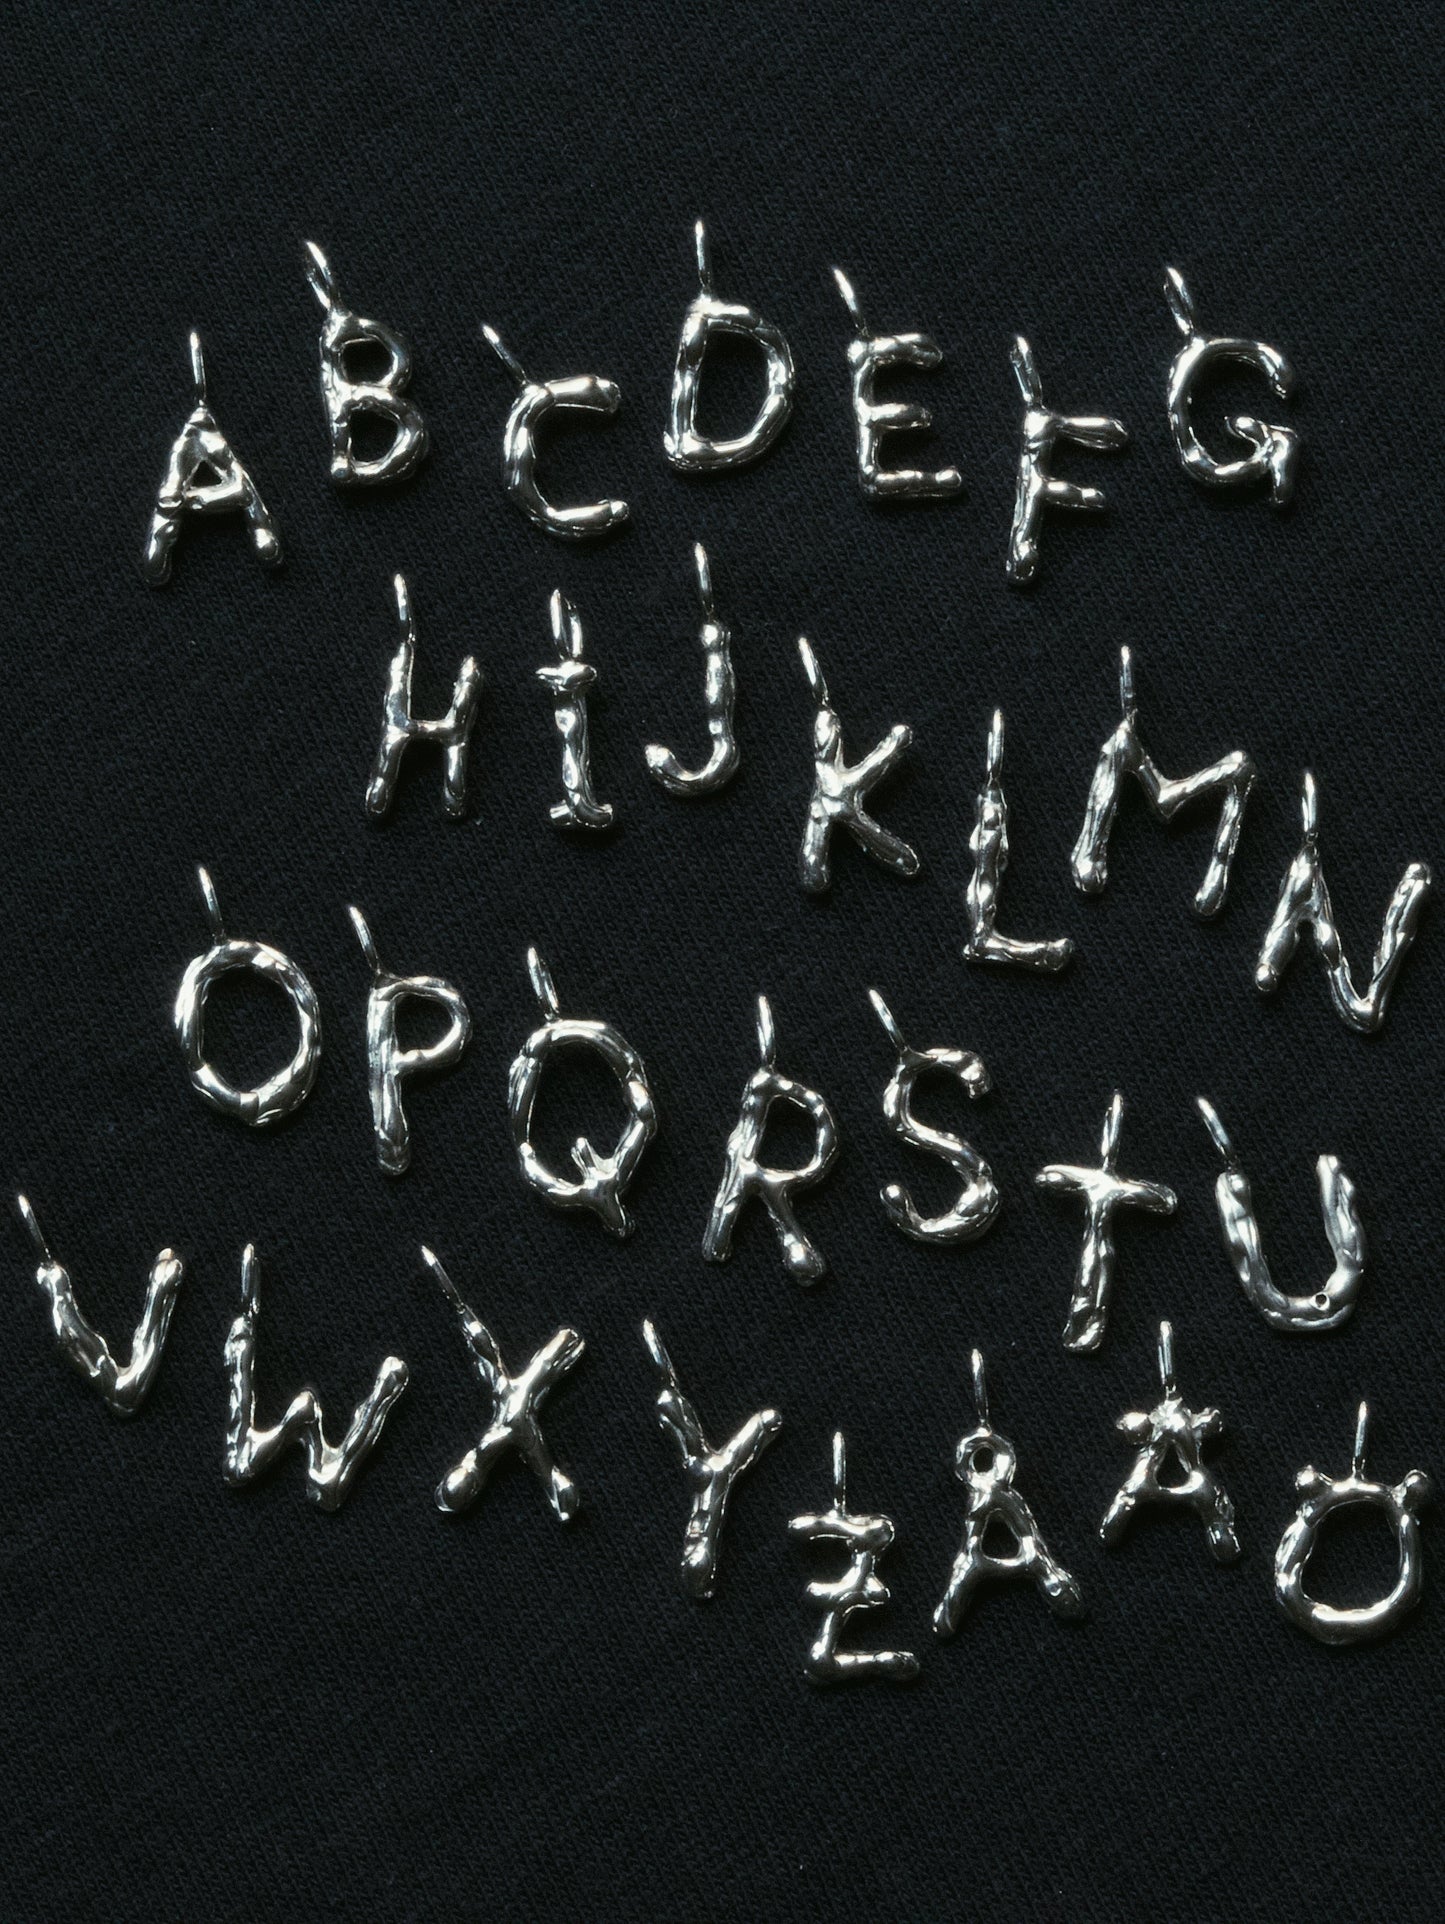 A B C D E F G
H I J K L M N
O P Q R S T U
V W X Y Z Å Ä Ö